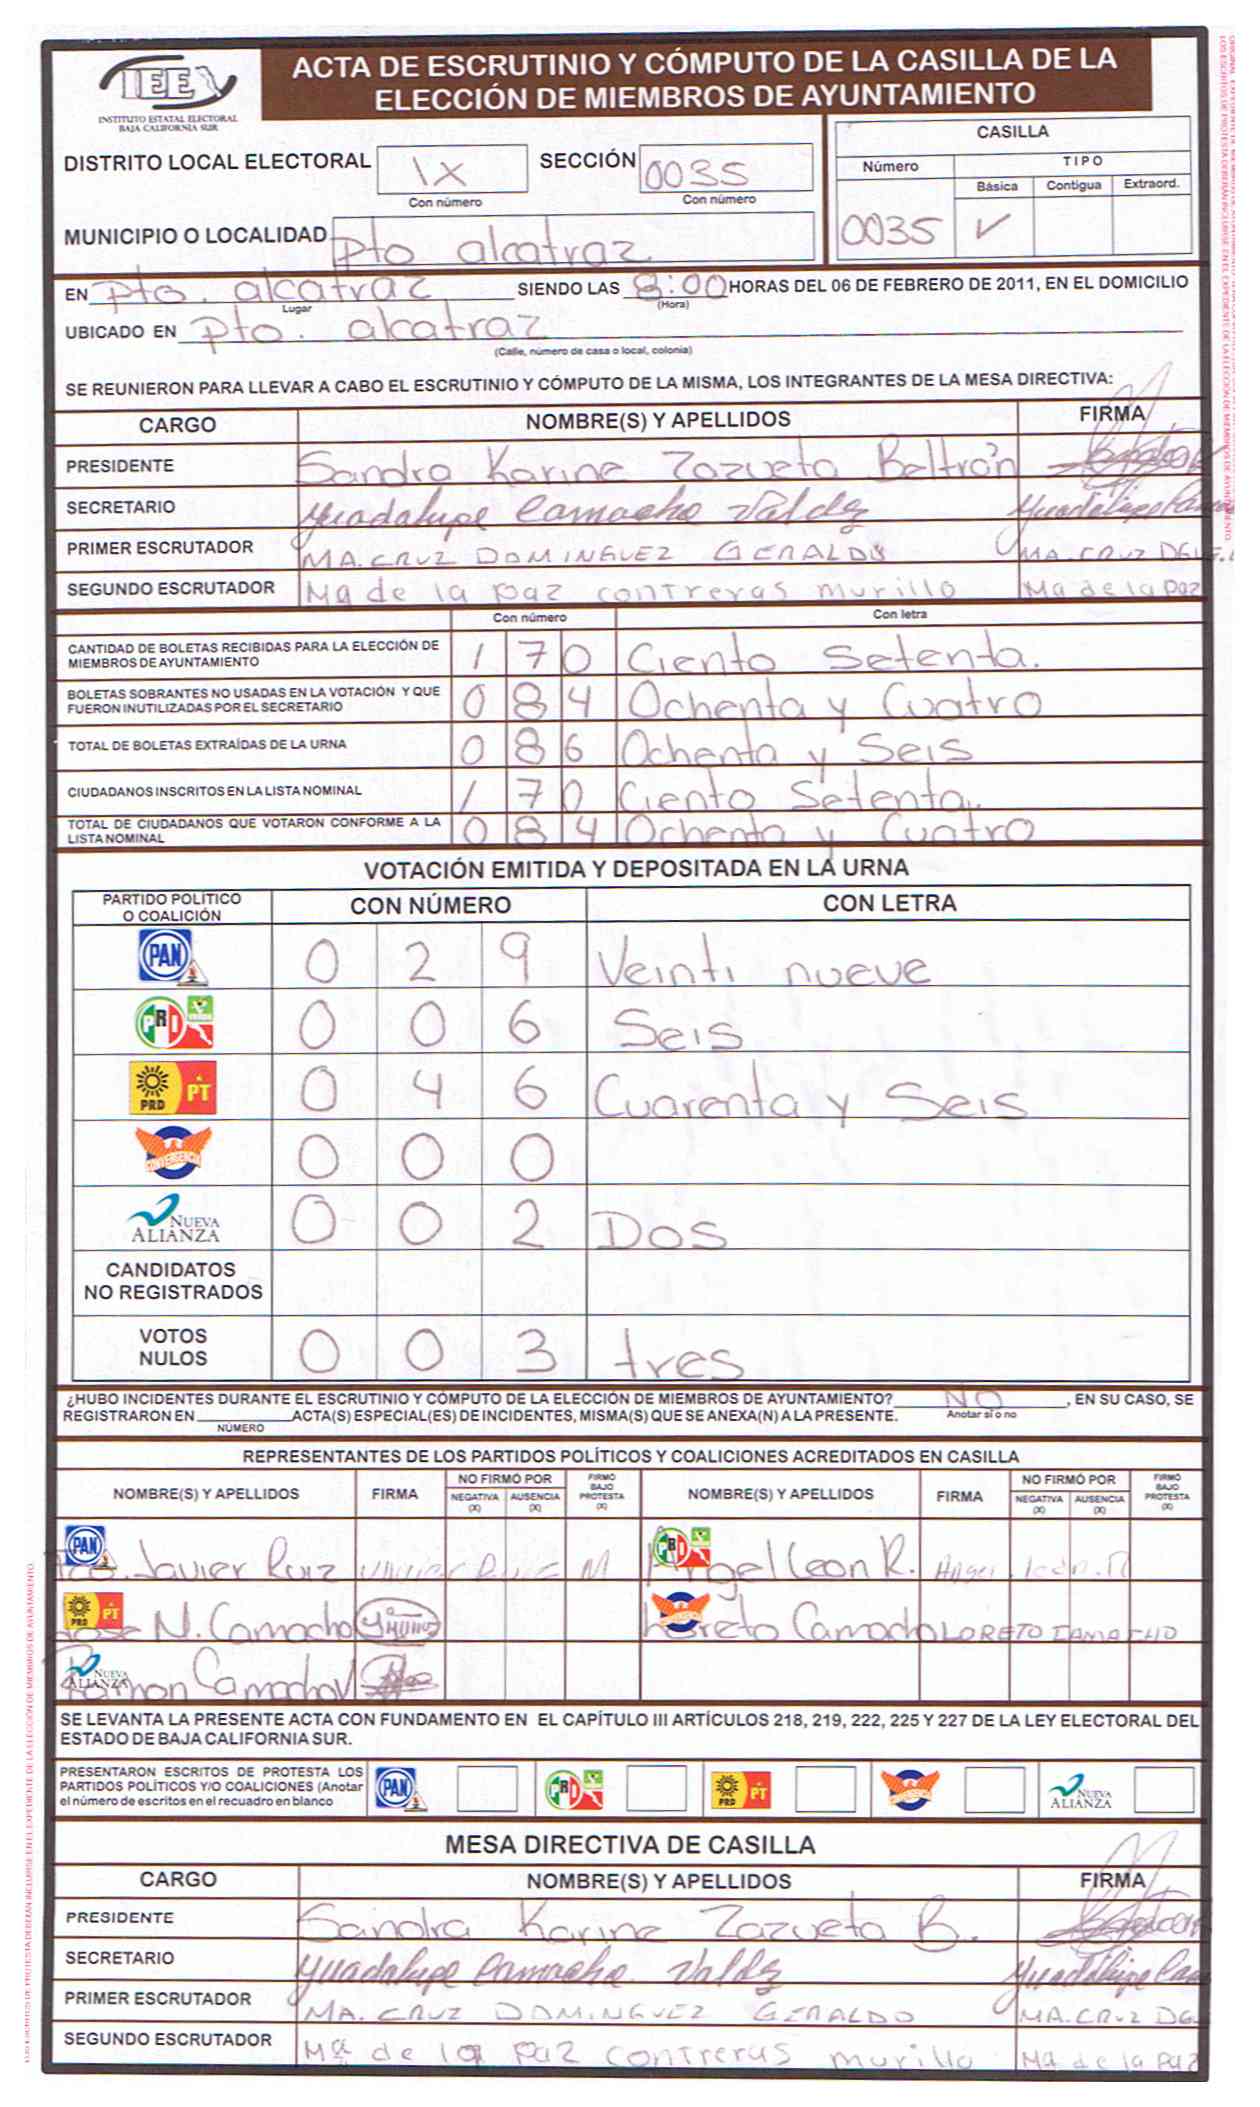 IEE
INSTITUTO ESTATAL ELECTORAL
BAJA CALIFORNIA SUR
ACTA DE ESCRUTINIO Y CÓMPUTO DE LA CASILLA DE LA
ELECCIÓN DE MIEMBROS DE AYUNTAMIENTO
DISTRITO LOCAL ELECTORAL IX SECCIÓN 0035
Con número Con número
MUNICIPIO O LOCALIDAD Pto alcatraz
CASILLA
Número TIPO
Básica Contigua Extraord.
0035 ✓
EN Pto. alcatraz SIENDO LAS 8:00 HORAS DEL 06 DE FEBRERO DE 2011, EN EL DOMICILIO
Lugar (Hora)
UBICADO EN Pto. alcatraz
(Calle, número de casa o local, colonia)
SE REUNIERON PARA LLEVAR A CABO EL ESCRUTINIO Y CÓMPUTO DE LA MISMA, LOS INTEGRANTES DE LA MESA DIRECTIVA:
CARGO NOMBRE(S) Y APELLIDOS FIRMA
PRESIDENTE Sandra Karine Zazueta Beltrán
SECRETARIO Guadalupe Camacho Valdez
PRIMER ESCRUTADOR MA. CRUZ DOMINGUEZ GERALDO MA. CRUZ DGUE.
SEGUNDO ESCRUTADOR Ma de la paz contreras murillo Ma de la paz
Con número Con letra
CANTIDAD DE BOLETAS RECIBIDAS PARA LA ELECCIÓN DE
MIEMBROS DE AYUNTAMIENTO 1 7 0 Ciento Setenta.
BOLETAS SOBRANTES NO USADAS EN LA VOTACIÓN Y QUE
FUERON INUTILIZADAS POR EL SECRETARIO 0 8 4 Ochenta y Cuatro
TOTAL DE BOLETAS EXTRAÍDAS DE LA URNA 0 8 6 Ochenta y Seis
CIUDADANOS INSCRITOS EN LA LISTA NOMINAL 1 7 0 Ciento Setenta.
TOTAL DE CIUDADANOS QUE VOTARON CONFORME A LA
LISTA NOMINAL 0 8 4 Ochenta y Cuatro
VOTACIÓN EMITIDA Y DEPOSITADA EN LA URNA
PARTIDO POLÍTICO
O COALICIÓN CON NÚMERO CON LETRA
PAN 0 2 9 Veinti nueve
PRI VERDE 0 0 6 Seis
PRD PT 0 4 6 Cuarenta y Seis
CONVERGENCIA 0 0 0
NUEVA ALIANZA 0 0 2 Dos
CANDIDATOS
NO REGISTRADOS
VOTOS
NULOS 0 0 3 tres
¿HUBO INCIDENTES DURANTE EL ESCRUTINIO Y CÓMPUTO DE LA ELECCIÓN DE MIEMBROS DE AYUNTAMIENTO? NO, EN SU CASO, SE
REGISTRARON EN ACTA(S) ESPECIAL(ES) DE INCIDENTES, MISMA(S) QUE SE ANEXA(N) A LA PRESENTE. Anotar sí o no
NÚMERO
REPRESENTANTES DE LOS PARTIDOS POLÍTICOS Y COALICIONES ACREDITADOS EN CASILLA
NOMBRE(S) Y APELLIDOS FIRMA NO FIRMÓ POR NEGATIVA (X) AUSENCIA (X) FIRMÓ BAJO PROTESTA (X) NOMBRE(S) Y APELLIDOS FIRMA NO FIRMÓ POR NEGATIVA (X) AUSENCIA (X) FIRMÓ BAJO PROTESTA (X)
PAN Fco. Javier Ruiz Javier Ruiz M PRI Angel Leon R. Angel León R
PRD PT Jose N. Camacho CONVERGENCIA Loreto Camacho LORETO CAMACHO
NUEVA ALIANZA Ramon Camacho V
SE LEVANTA LA PRESENTE ACTA CON FUNDAMENTO EN EL CAPÍTULO III ARTÍCULOS 218, 219, 222, 225 Y 227 DE LA LEY ELECTORAL DEL
ESTADO DE BAJA CALIFORNIA SUR.
PRESENTARON ESCRITOS DE PROTESTA LOS
PARTIDOS POLÍTICOS Y/O COALICIONES (Anotar
el número de escritos en el recuadro en blanco
PAN PRI PRD PT CONVERGENCIA NUEVA ALIANZA
MESA DIRECTIVA DE CASILLA
CARGO NOMBRE(S) Y APELLIDOS FIRMA
PRESIDENTE Sandra Karine Zazueta B.
SECRETARIO Guadalupe Camacho Valdez
PRIMER ESCRUTADOR MA. CRUZ DOMINGUEZ GERALDO MA. CRUZ DG
SEGUNDO ESCRUTADOR Mª de la paz contreras murillo Ma de la paz